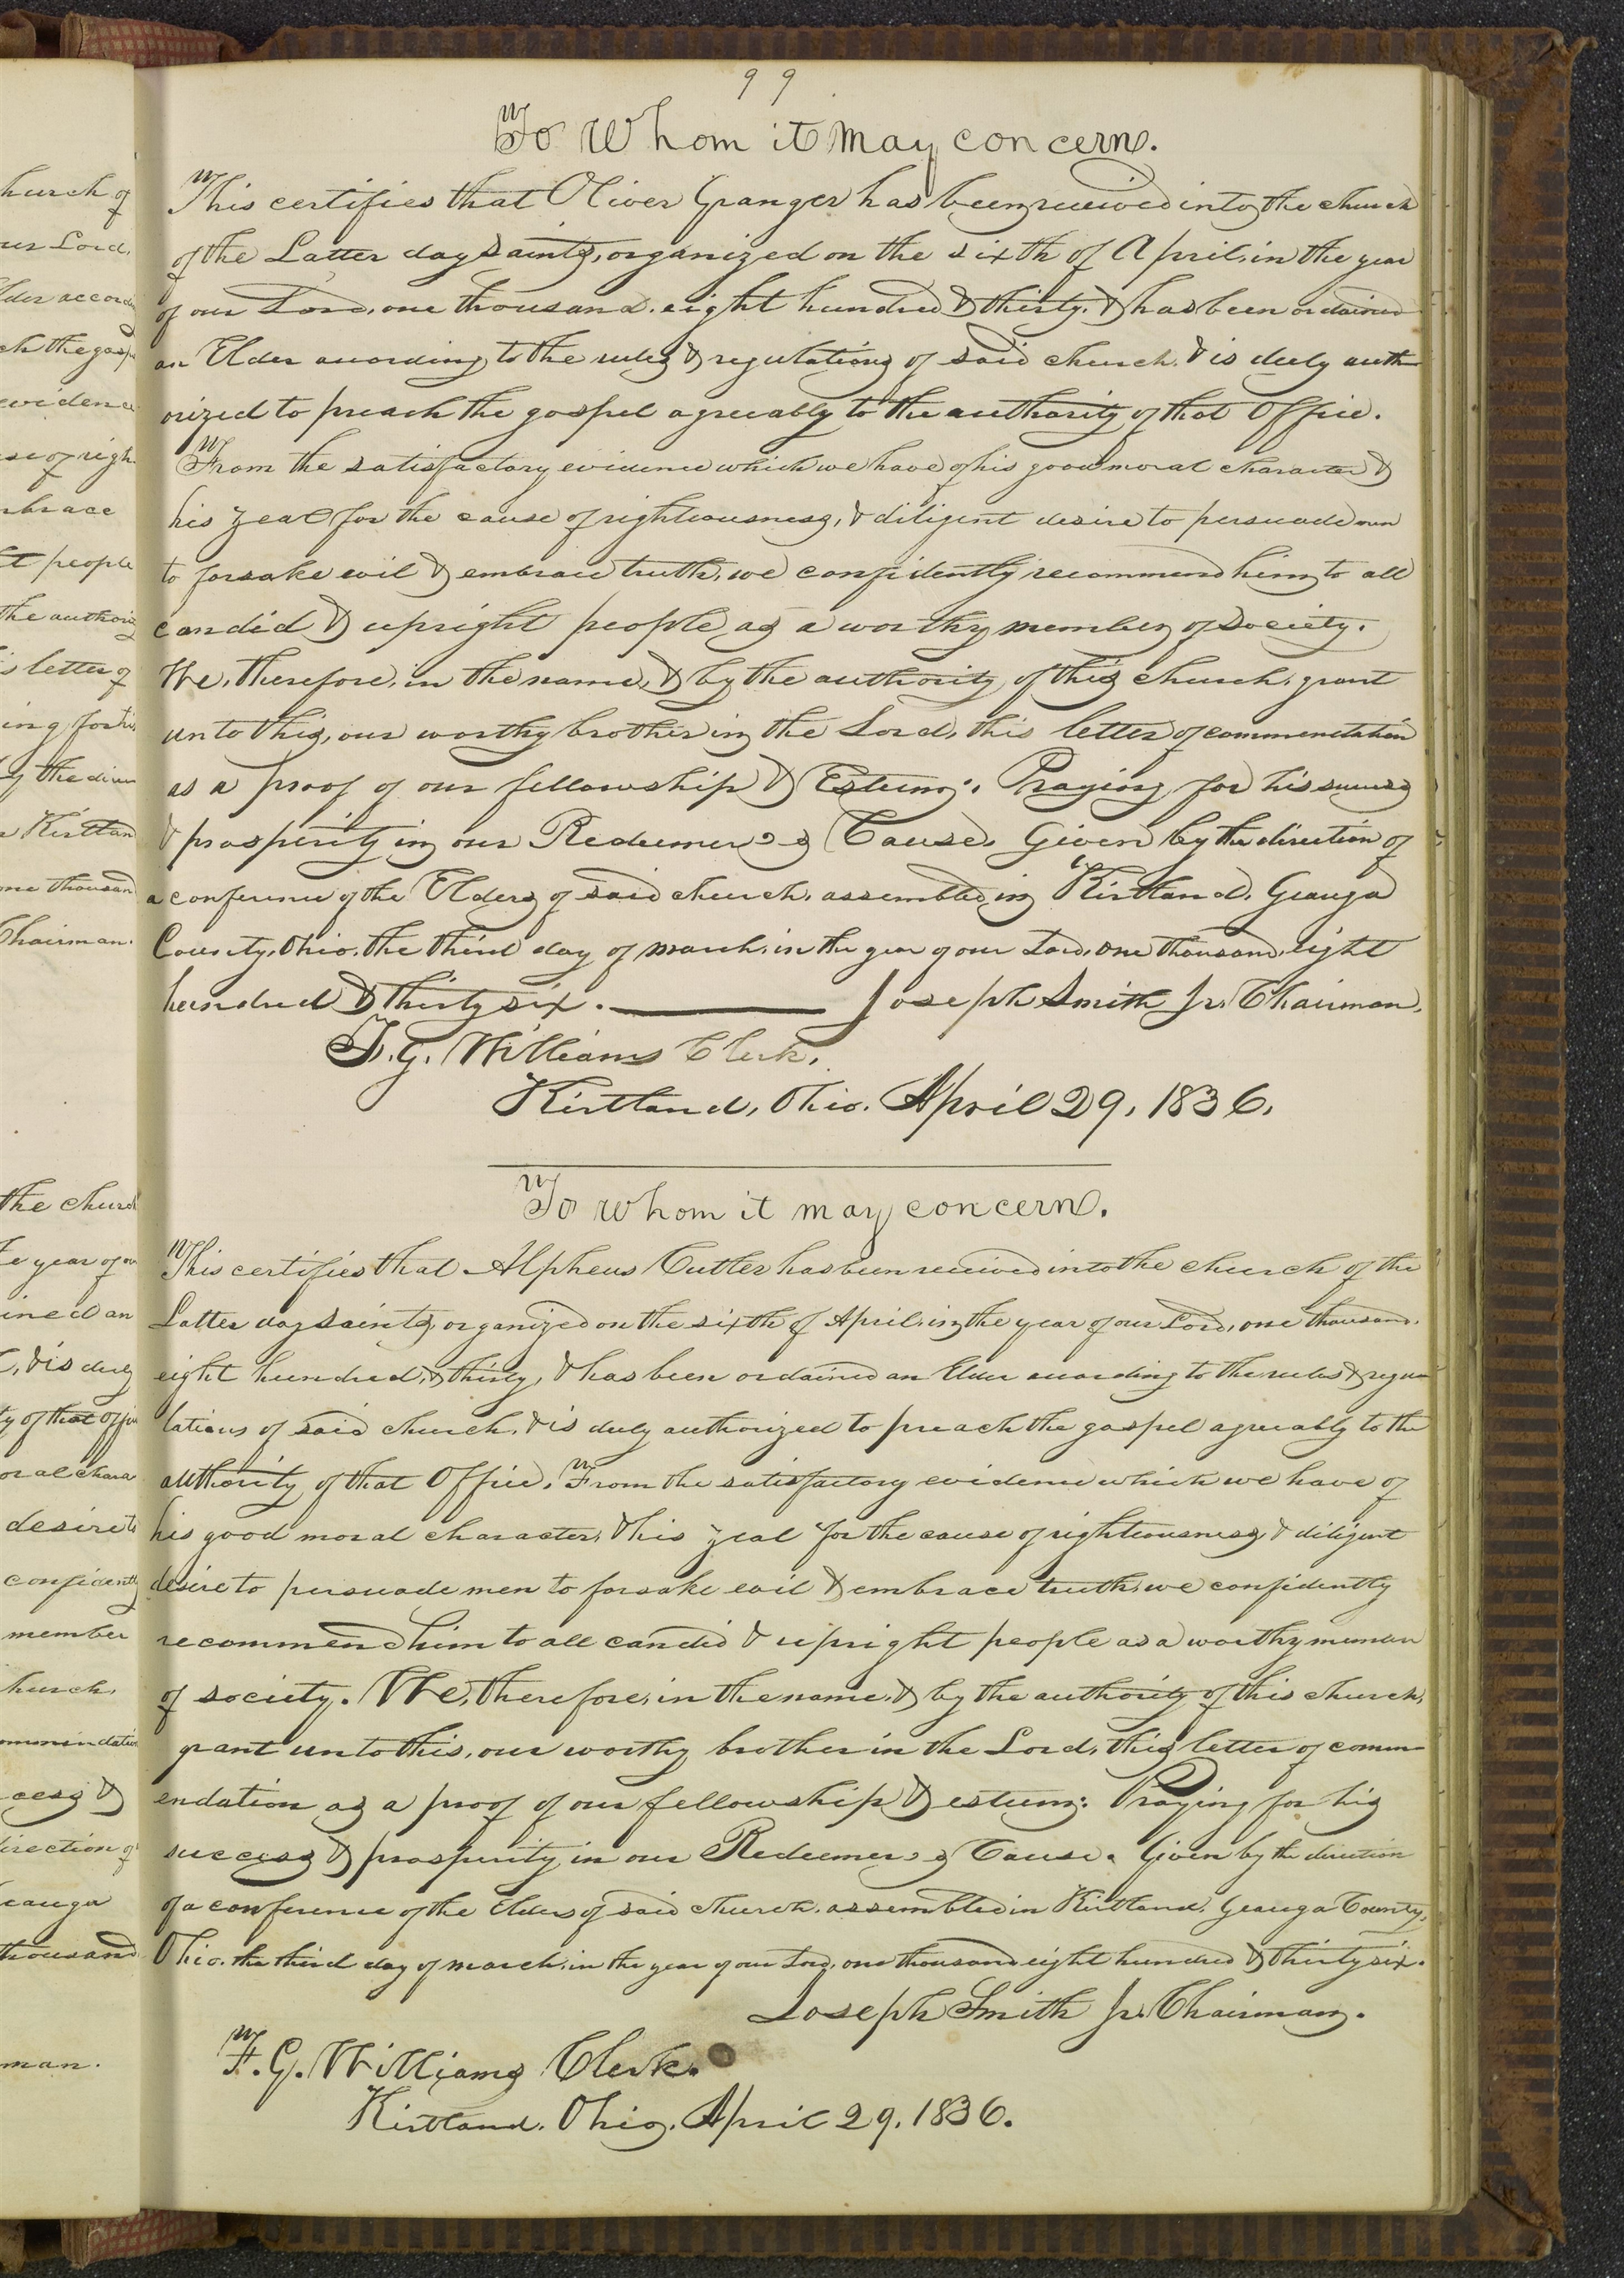 hurch of
ur Lord,
lder accord
ch the gosp
evidence
se of righ
mbrace
t people
the author
s letter of
ing for his
y the direc
n Kirtlan
one thousan
Chairman.
the church
e year of ou
ined an
, & is duly
ty of that offi
oral chara
desire to
confident
member
hurch,
ommendatio
cess &
direction of
eauga
thousand
man.
99
To Whom it May concern.
This certifies that Oliver Granger has been received into the church
of the Latter day Saints, organized on the sixth of April, in the year
of our Lord, one thousand, eight hundred & thirty, & has been ordained
an Elder according to the rules & regulations of said church, & is duly auth
orized to preach the gospel agreeably to the authority of that Office.
From the satisfactory evidence which we have of his good moral character &
his zeal for the cause of righteousness, & diligent desire to persuade men
to forsake evil & embrace truth, we confidently recommend him to all
candid & upright people as a worthy member of Society.
We, therefore, in the name, & by the authority of this church, grant
unto this, our worthy brother in the Lord, this letter of commendation
as a proof of our fellowship & Esteem: Praying for his success
& prosperity in our Redeemer's Cause. Given by the direction of
a conference of the Elders of said church, assembled in Kirtland, Geauga
County, Ohio, the third day of march, in the year of our Lord, one thousand, eight
hundred & thirty six. — Joseph Smith Jr. Chairman.
F. G. Williams Clerk.
Kirtland, Ohio. April 29, 1836.
To whom it may concern.
This certifies that Alpheus Cutler has been received into the church of the
Latter day saints, organized on the sixth of April, in the year of our Lord, one thousand,
eight hundred, & thirty, & has been ordained an Elder according to the rules & regu
lations of said church, & is duly authorized to preach the gospel agreeably to the
authority of that Office. From the satisfactory evidence which we have of
his good moral character, & his zeal for the cause of righteousness, & diligent
desire to persuade men to forsake evil & embrace truth, we confidently
recommend him to all candid & upright people as a worthy member
of society. We, therefore, in the name, & by the authority of this church,
grant unto this, our worthy brother in the Lord, this letter of comm
endation as a proof of our fellowship & esteem: Praying for his
success & prosperity in our Redeemer's Cause. Given by the direction
of a conference of the Elders of said church, assembled in Kirtland, Geauga County,
Ohio, the third day of march, in the year of our Lord, one thousand eight hundred & thirty six.
Joseph Smith Jr. Chairman.
F. G. Williams Clerk.
Kirtland, Ohio, April 29, 1836.